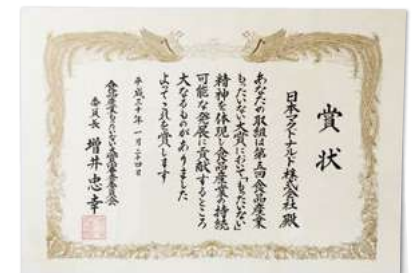 賞状
日本マクドナルド株式会社殿
あなたの取組は第五回食品産業
もったいない大賞において「もったいない」
精神を体現し食品産業の持続
可能な発展に貢献するところ
大なるものがありました
よってこれを賞します
平成三十年一月二十四日
食品産業もったいない大賞審査委員会
委員長 増井忠幸